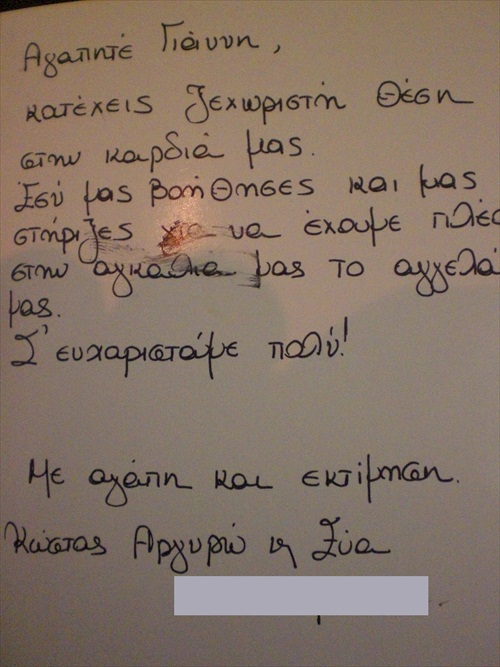 Αγαπητέ Γιάννη,
κατέχεις ξεχωριστή θέση
στην καρδιά μας.
Εσύ μας βοήθησες και μας
στήριξες για να έχουμε πλέο
στην αγκαλιά μας το αγγελά
μας.
Σ' ευχαριστάμε πολύ!
Με αγάπη και εκτίμηση.
Κώστας Αργυρώ η